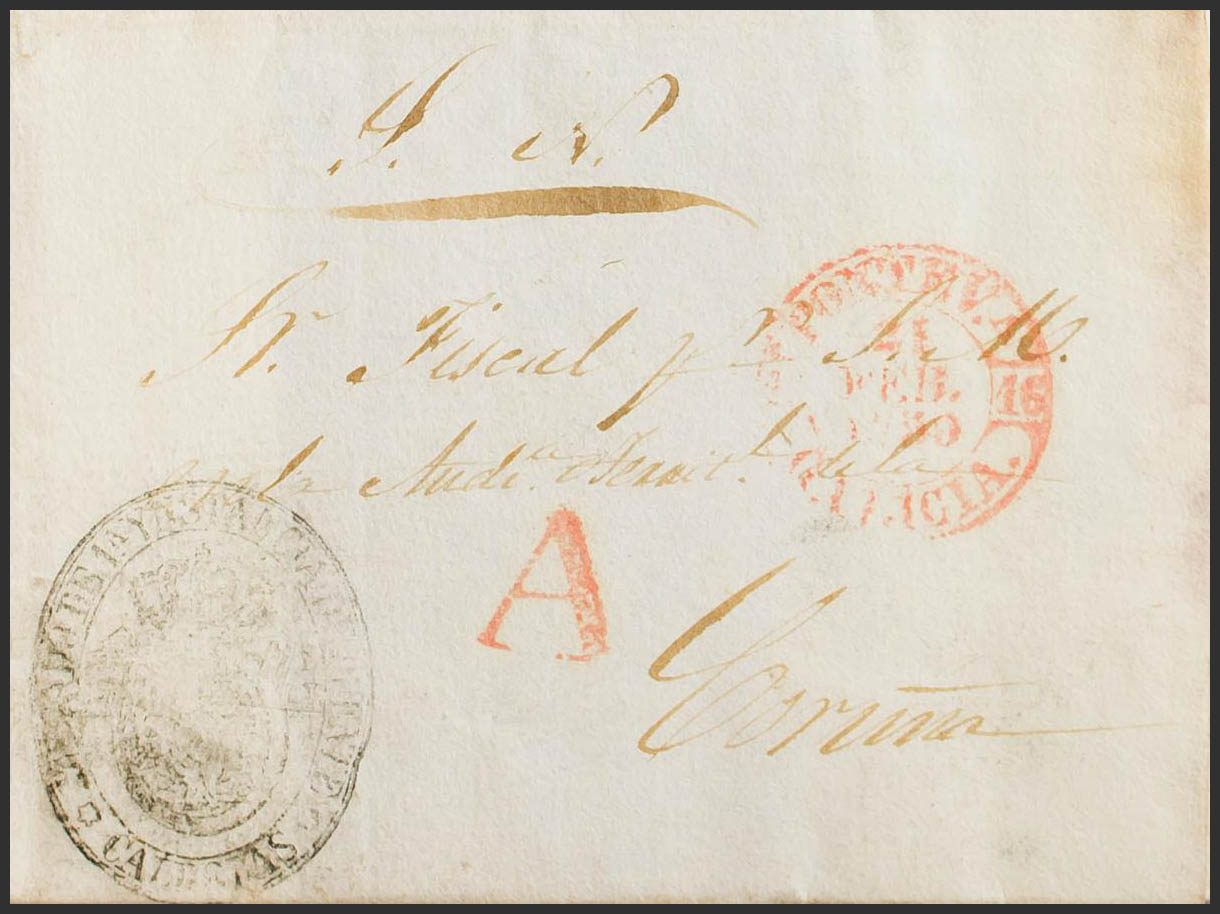 S. N.
Sr. Fiscal pr S. M.
en la Auda. Territl. de la
Coruña
A
PONTEVEDRA
21
FEB.
1850
16
GALICIA.
CALDAS